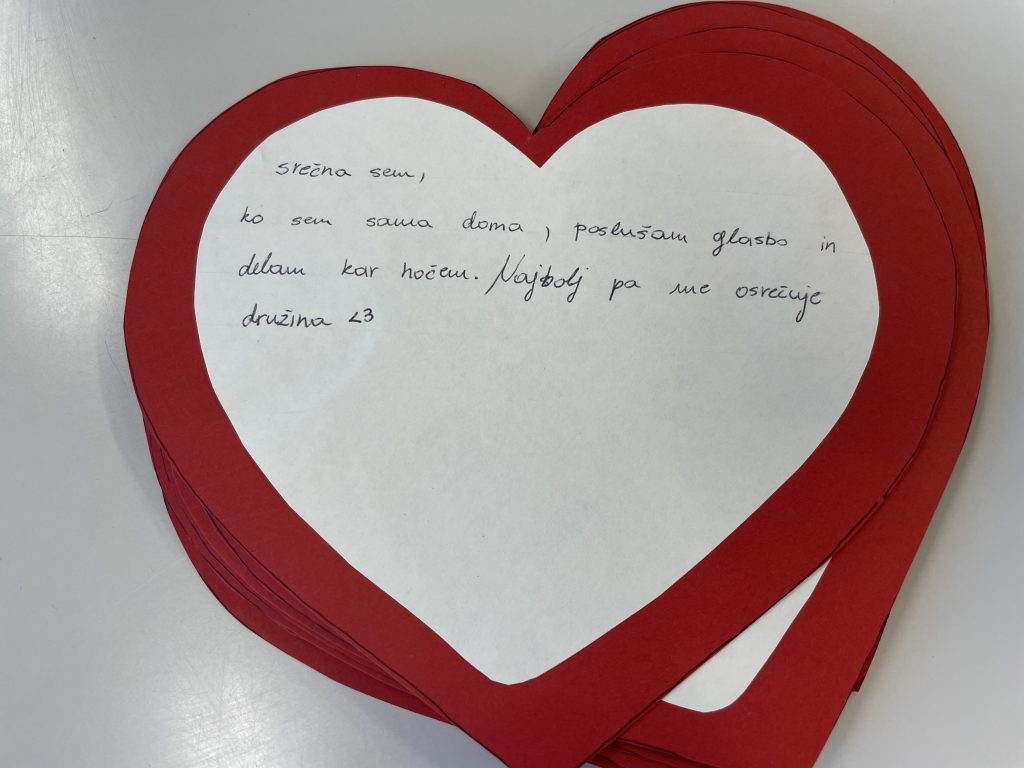 srečna sem,
ko sem sama doma, poslušam glasbo in
delam kar hočem. Najbolj pa me osrečuje
družina <3